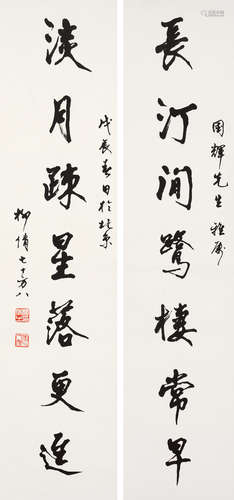 國輝先生雅屬
長汀閒鷺棲常早
淡月疎星落更遲
戊辰春日於北京
柳倩七十有八